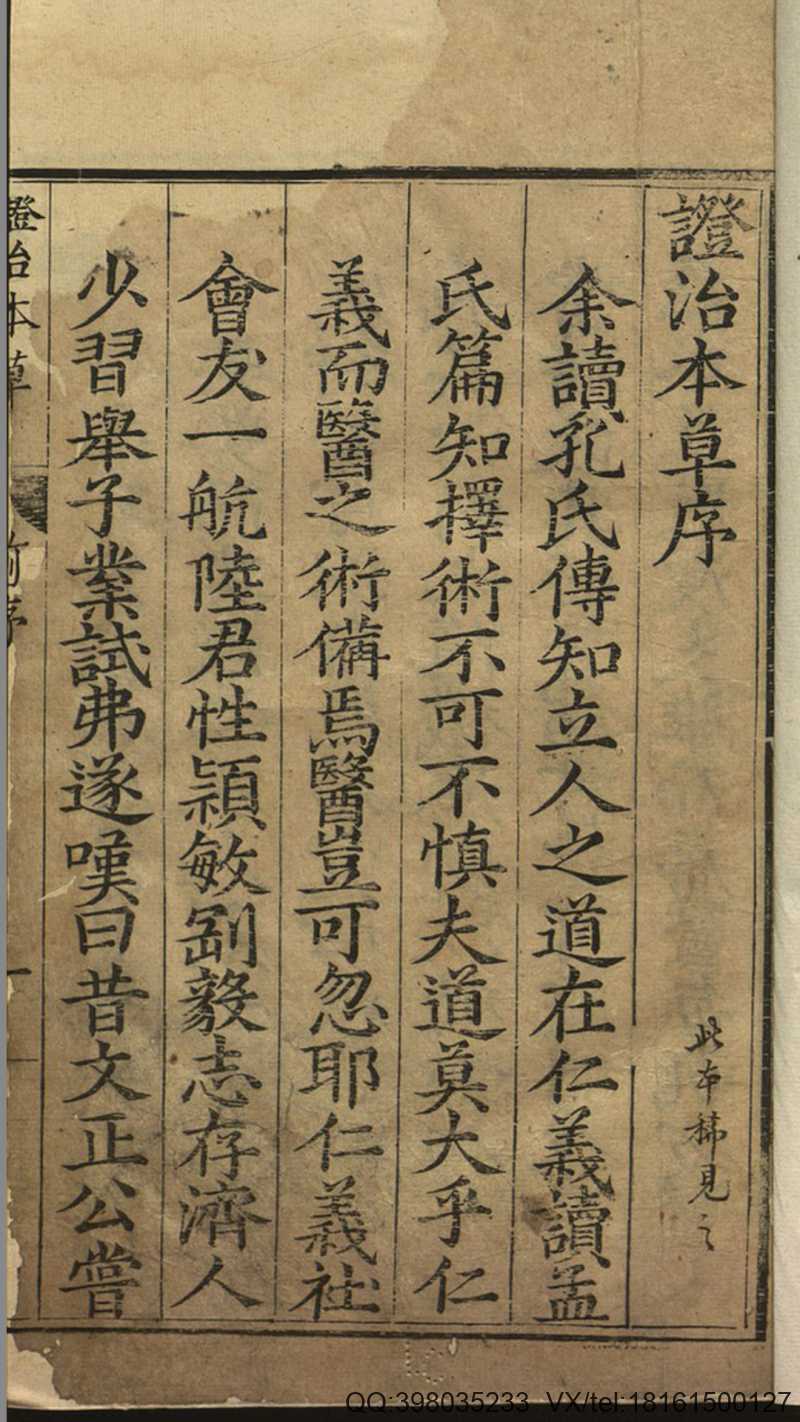 證治本草序
此本稀見之
余讀孔氏傳知立人之道在仁義讀孟
氏篇知擇術不可不慎夫道莫大乎仁
義而醫之術備焉醫豈可忽耶仁義社
會友一航陸君性穎敏剛毅志存濟人
少習舉子業試弗遂嘆曰昔文正公嘗
證治本草 前序 一
QQ:398035233 VX/tel:18161500127